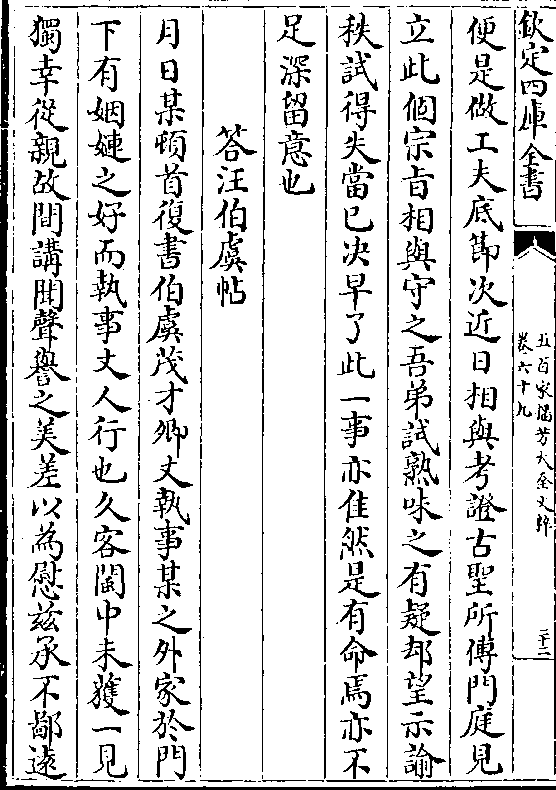 欽定四庫全書
五百家播芳大全文粹
卷六十九
二十二
便是做工夫底節次近日相與考證古聖所傳門庭見
立此個宗旨相與守之吾弟試熟味之有疑却望示諭
秩試得失當已决早了此一事亦佳然是有命焉亦不
足深留意也
答汪伯虞帖
月日某頓首復書伯虞茂才鄉丈執事某之外家於門
下有姻娅之好而執事丈人行也久客閩中未獲一見
獨幸從親故間講聞聲譽之美差以為慰兹承不鄙逺